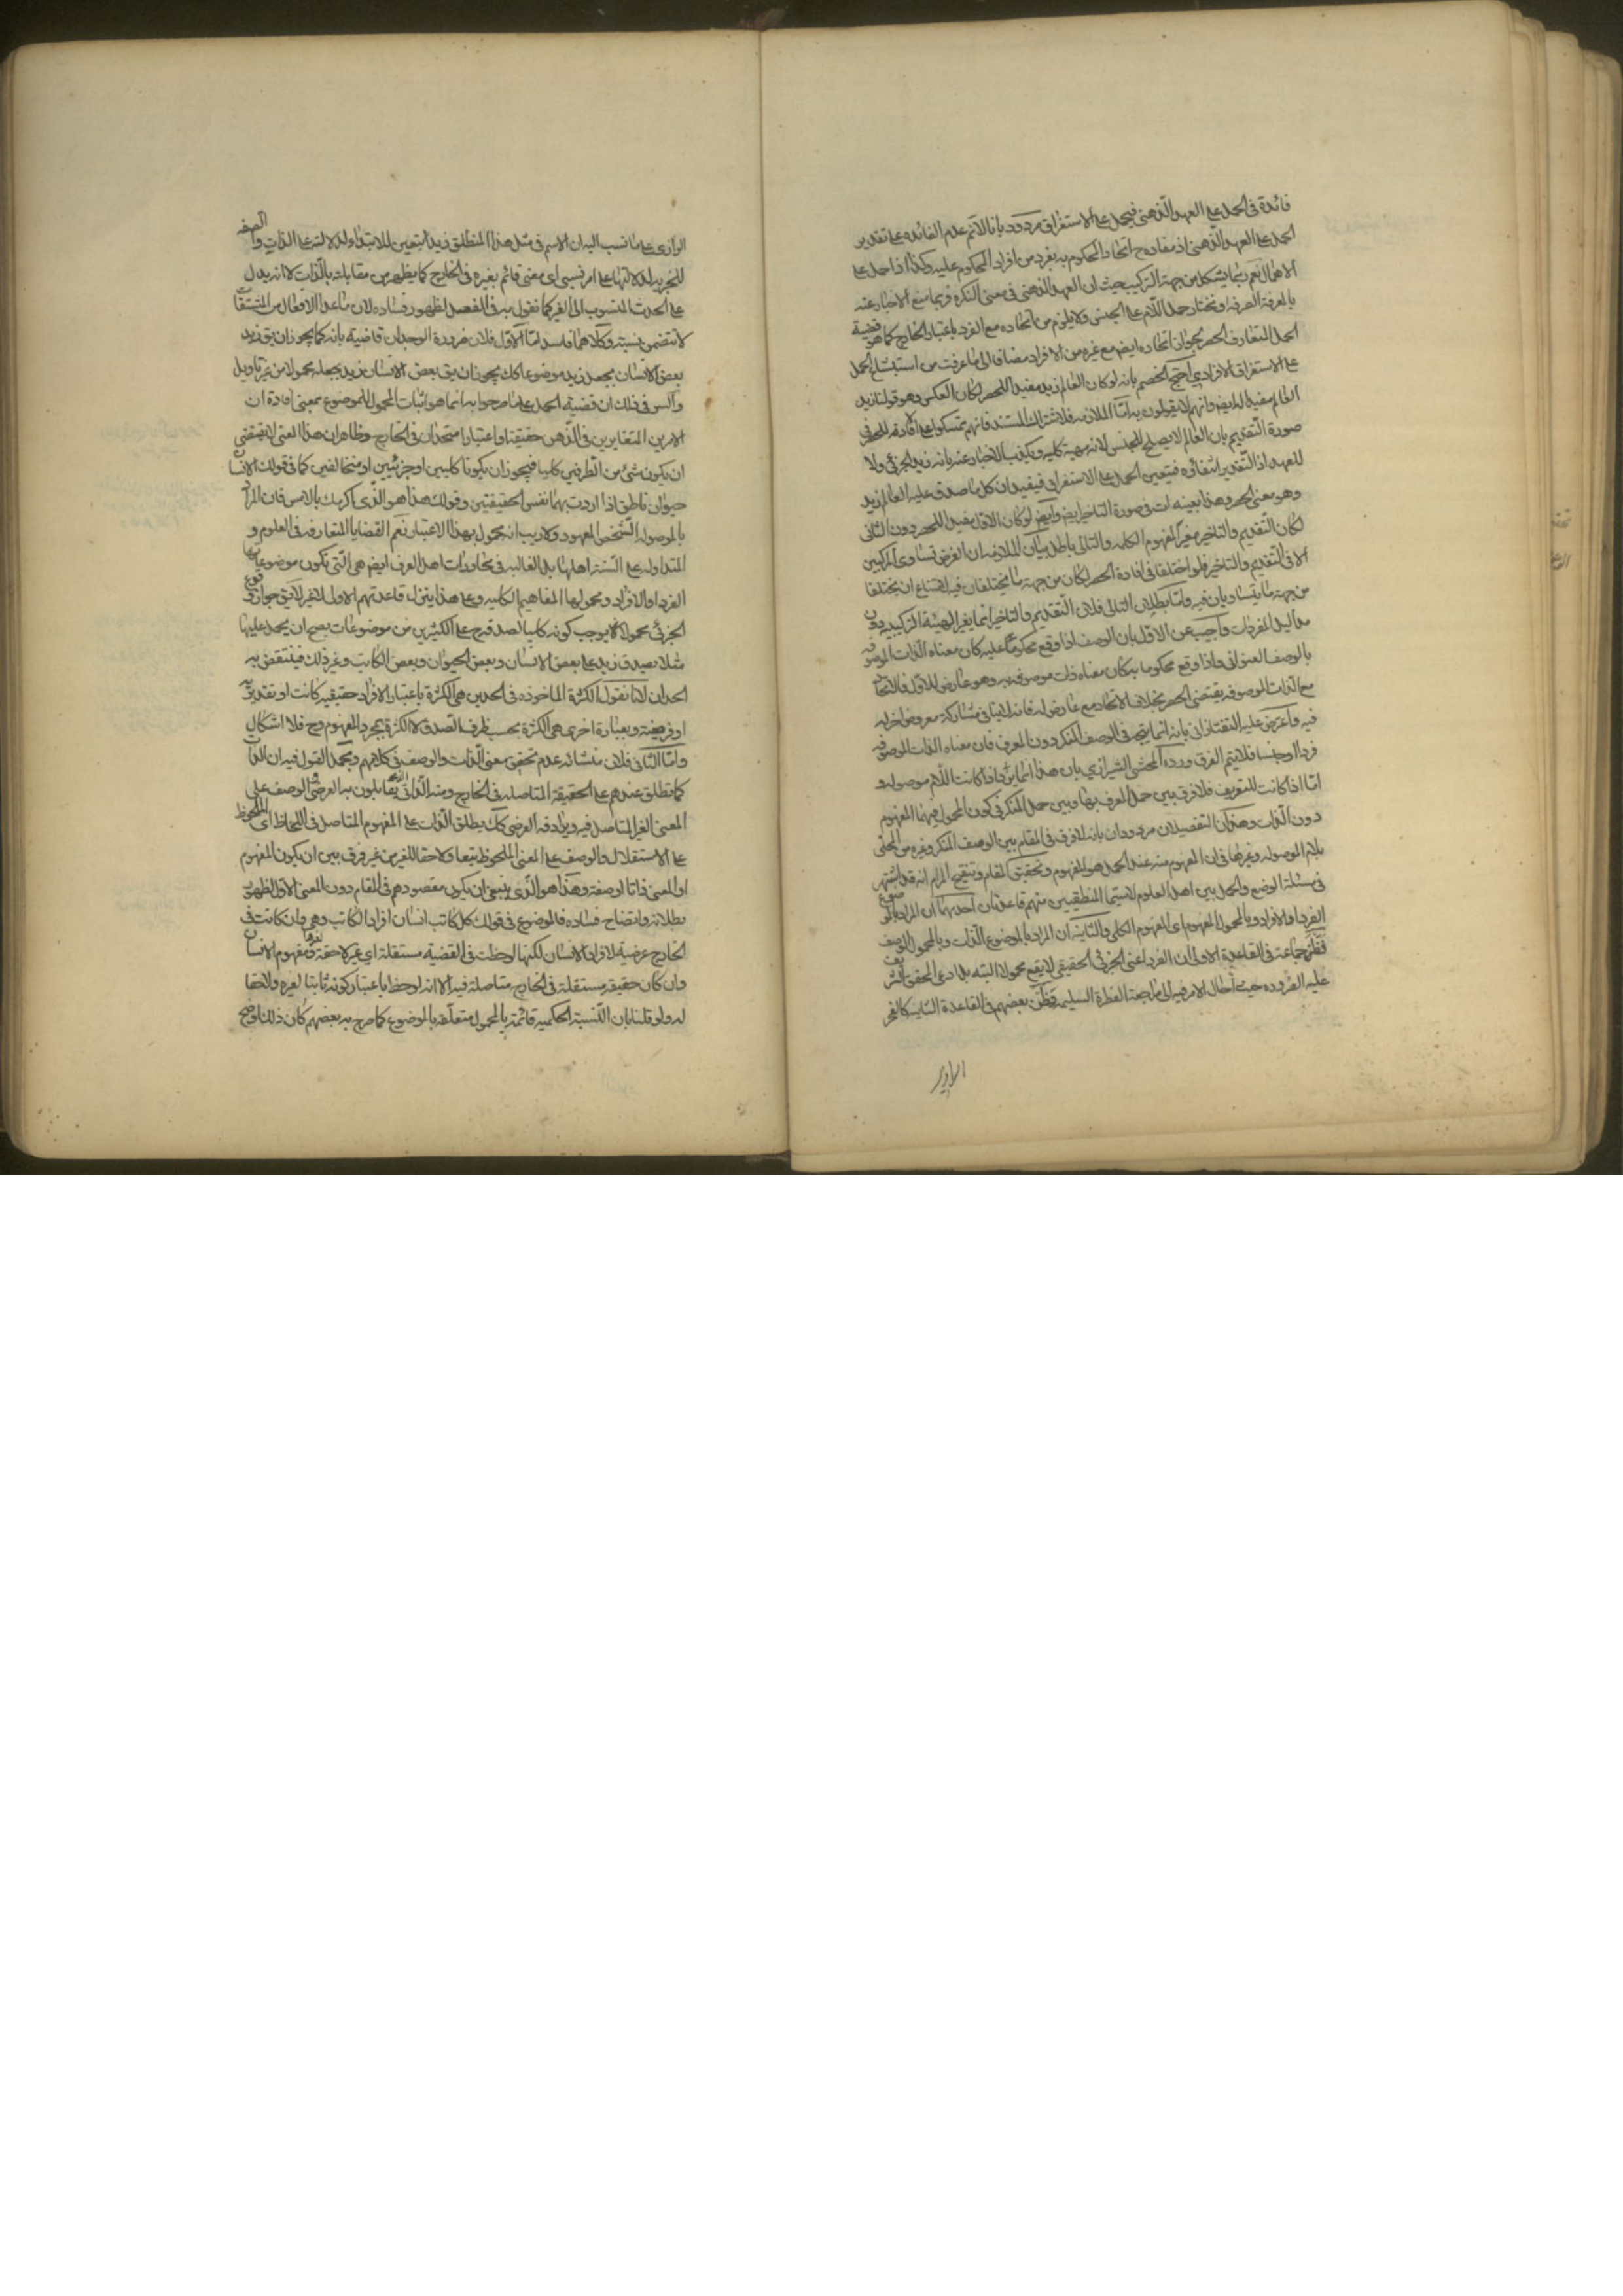 فائدة فى الحمل على العهد الذهنى فيحمل على الاستغراق مردود بانا لانم عدم الفائده على تقدير
الحمل على العهد الذهنى اذ مفاده ح اتحاد المحكوم به بفرد من افراد المحكوم عليه وكذا اذا حمل على
الاهمال نعم ربما يشكل من جهة التركيب حيث ان العهد الذهنى فى معنى النكره فربما منع الاخبار عنه
بالمعرفة الصرفه ونختار حمل اللام على الجنس ولا يلزم من اتحاده مع الفرد باعتبار الخارج كما هو قضية
الحمل المتعارف الحصر لجواز اتحاده ايض مع غيره من الافراد مضافا الى ما عرفت من الحمل
على الاستغراق الافرادي احتج الخصم بانه لو كان العالم زيد مفيدا للحصر لكان العكس وهو قولنا زيد
العالم مفيدا له ايض وانهم لا يقولون به اما الملازمه فلاشتراك المستند فانهم تمسكوا على افادته للحصر فى
صورة التقديم بان العالم لا يصلح للجنس لانه مهية كليه ويكذب الاخبار عنه بانه زيد الجزئى ولا
للعهد اذ التقدير انتفائه فيتعين الحمل على الاستغراق فيفيد ان كل ما صدق عليه العالم زيد
وهو معنى الحصر وهذا بعينه ات فى صورة التاخير ايض وايض لو كان الاول مفيدا للحصر دون الثانى
لكان التقديم والتاخير مغيرا لمفهوم الكلمه والتالى باطل بيان الملازمه ان الفرض تساوى المركبين
الا فى التقديم والتاخير فلو اختلفا فى افادة الحصر لكان من جهة ما يختلفان فيه لامتناع ان يختلفا
من جهة ما يتساويان فيه واما بطلان التالى فلان التقديم والتاخير انما يغير الهيئة التركيبيه دون
مداليل المفردات واجيب عن الاول بان الوصف اذا وقع محكوما عليه كان معناه الذات الموصوفه
بالوصف العنوانى واذا وقع محكوما به كان معناه ذات موصوفه به وهو عارض للاول فالاتحاد
مع الذات الموصوفه يقتضى الحصر بخلاف الاتحاد مع عارض له فانه لا ينافى مشاركة معروض اخر له
فيه واعترض عليه التفتازانى بانه انما يتم فى الوصف المنكر دون المعرف فان معناه الذات الموصوفه
فردا او جنسا فلا يتم الفرق ورده المحشى الشيرازي بان هذا انما يتم اذا كانت اللام موصوله و
اما اذا كانت للتعريف فلا فرق بين حمل المعرف بها وبين حمل المنكر فى كون المحمول فيهما المفهوم
دون الذات وهذان التفصيلان مردودان بانه لا فرق فى المقام بين الوصف المنكر وغيره من المحلى
بلام الموصوله وغيرها فى ان المفهوم منه عند الحمل هو المفهوم وتحقيق المقام وتنقيح المرام انه قد اشتهر
فى مسئلة الوضع والحمل بين اهل العلوم لاسيما المنطقيين منهم قاعدتان احديهما ان المراد بالموضوع
الفرد او الافراد وبالمحمول المفهوم اى المفهوم الكلى والثانيه ان المراد بالموضوع الذات وبالمحمول الوصف
فظن جماعة فى القاعدة الاولى ان الفرد اعنى الجزئى الحقيقى لا يقع محمولا البته بل ادعى المحقق الشريف
عليه الضروره حيث احال الامر فيه الى مراجعة الفطرة السليمه وظن بعضهم فى القاعدة الثانيه كالفخر
الرازى
الرازى على ما نسب اليه ان الاسم فى مثل هذا المنطلق زيد يتعين للابتداء لدلالته على الذات والصفه
للخبريه لدلالتها على امر نسبى اى معنى قائم بغيره فى الخارج كما يظهر من مقابلته بالذات لا انه يدل
على الحدث المنسوب الى الغير كما نقول به فى الفعل لظهور فساده لان ما عدا الافعال من المشتقات
لا تتضمن نسبته وكلاهما فاسد اما الاول فلان ضرورة الوجدان قاضية بانه كما يجوز ان يق زيد
بعض الانسان بجعل زيد موضوعا كك يجوز ان يق بعض الانسان زيد بجعله محمولا من غير تاويل
والسر فى ذلك ان قضية الحمل على ما صرحوا به انما هو اثبات المحمول للموضوع بمعنى افادة ان
الامرين المتغايرين فى الذهن حقيقة او اعتبارا متحدان فى الخارج وظاهر ان هذا المعنى لا يقتضى
ان يكون شئ من الطرفين كليا فيجوز ان يكونا كليين او جزئيين او متخالفين كما فى قولك الانسان
حيوان ناطق اذا اردت بهما نفس الحقيقتين وقولك هذا هو الذى اكرمك بالامس فان المراد
بالموصوله الشخص المعهود ولا ريب انه محمول بهذا الاعتبار نعم القضايا المتعارفه فى العلوم و
المتداوله على السنة اهلها بل الغالبه فى محاورات اهل العرف ايض هى التى تكون موضوعاتها
الفرد او الافراد ومحمولها المفاهيم الكليه وعلى هذا ينزل قاعدتهم الاولى لا غير لا يق جواز وقوع
الجزئى محمولا يوجب كونه كليا لصدقه ح على الكثيرين من موضوعات يصح ان يحمل عليها
مثلا يصدق زيد على بعض الانسان وبعض الحيوان وبعض الكاتب وغير ذلك فينتقض به
الحدان لانا نقول الكثرة الماخوذه فى الحدين هى الكثرة باعتبار الافراد حقيقيه كانت او تقديريه
او فرضيته وبعبارة اخرى هى الكثرة بحسب ظرف الصدق لا الكثره بمجرد المفهوم وح فلا اشكال
واما الثانى فلان منشائه عدم تحقيق معنى الذات والوصف فى كلامهم ومجمل القول فيه ان الذات
كما تطلق عندهم على الحقيقة المتاصله فى الخارج ومنه الذاتى يقابلون به العرضى والوصف على
المعنى الغير المتاصل فيه ويرادفه العرضى كك يطلق الذات على المفهوم المتاصل فى اللحاظ اى الملحوظ
على الاستقلال والوصف على المعنى الملحوظ تبعا ولاحقا للغير من غير فرق بين ان يكون المفهوم
او المعنى ذاتا او صفة وهذا هو الذى ينبغى ان يكون مقصودهم فى المقام دون المعنى الاول لظهور
بطلانه واتضاح فساده فالموضوع فى قولك كل كاتب انسان افراد الكاتب وهى وان كانت فى
الخارج عرضية لافراد الانسان لكنها لوحظت فى القضية مستقلة اى غير لاحقة لغيرها ومفهوم الانسان
وان كان حقيقة مستقلة فى الخارج متاصلة فيه الا انه لوحظ باعتبار كونه ثابتا لغيره ولاحقا
له ولو قلنا بان النسبة الحكميه قائمة بالمحمول متعلقه بالموضوع كما صرح به بعضهم كان ذلك اوضح